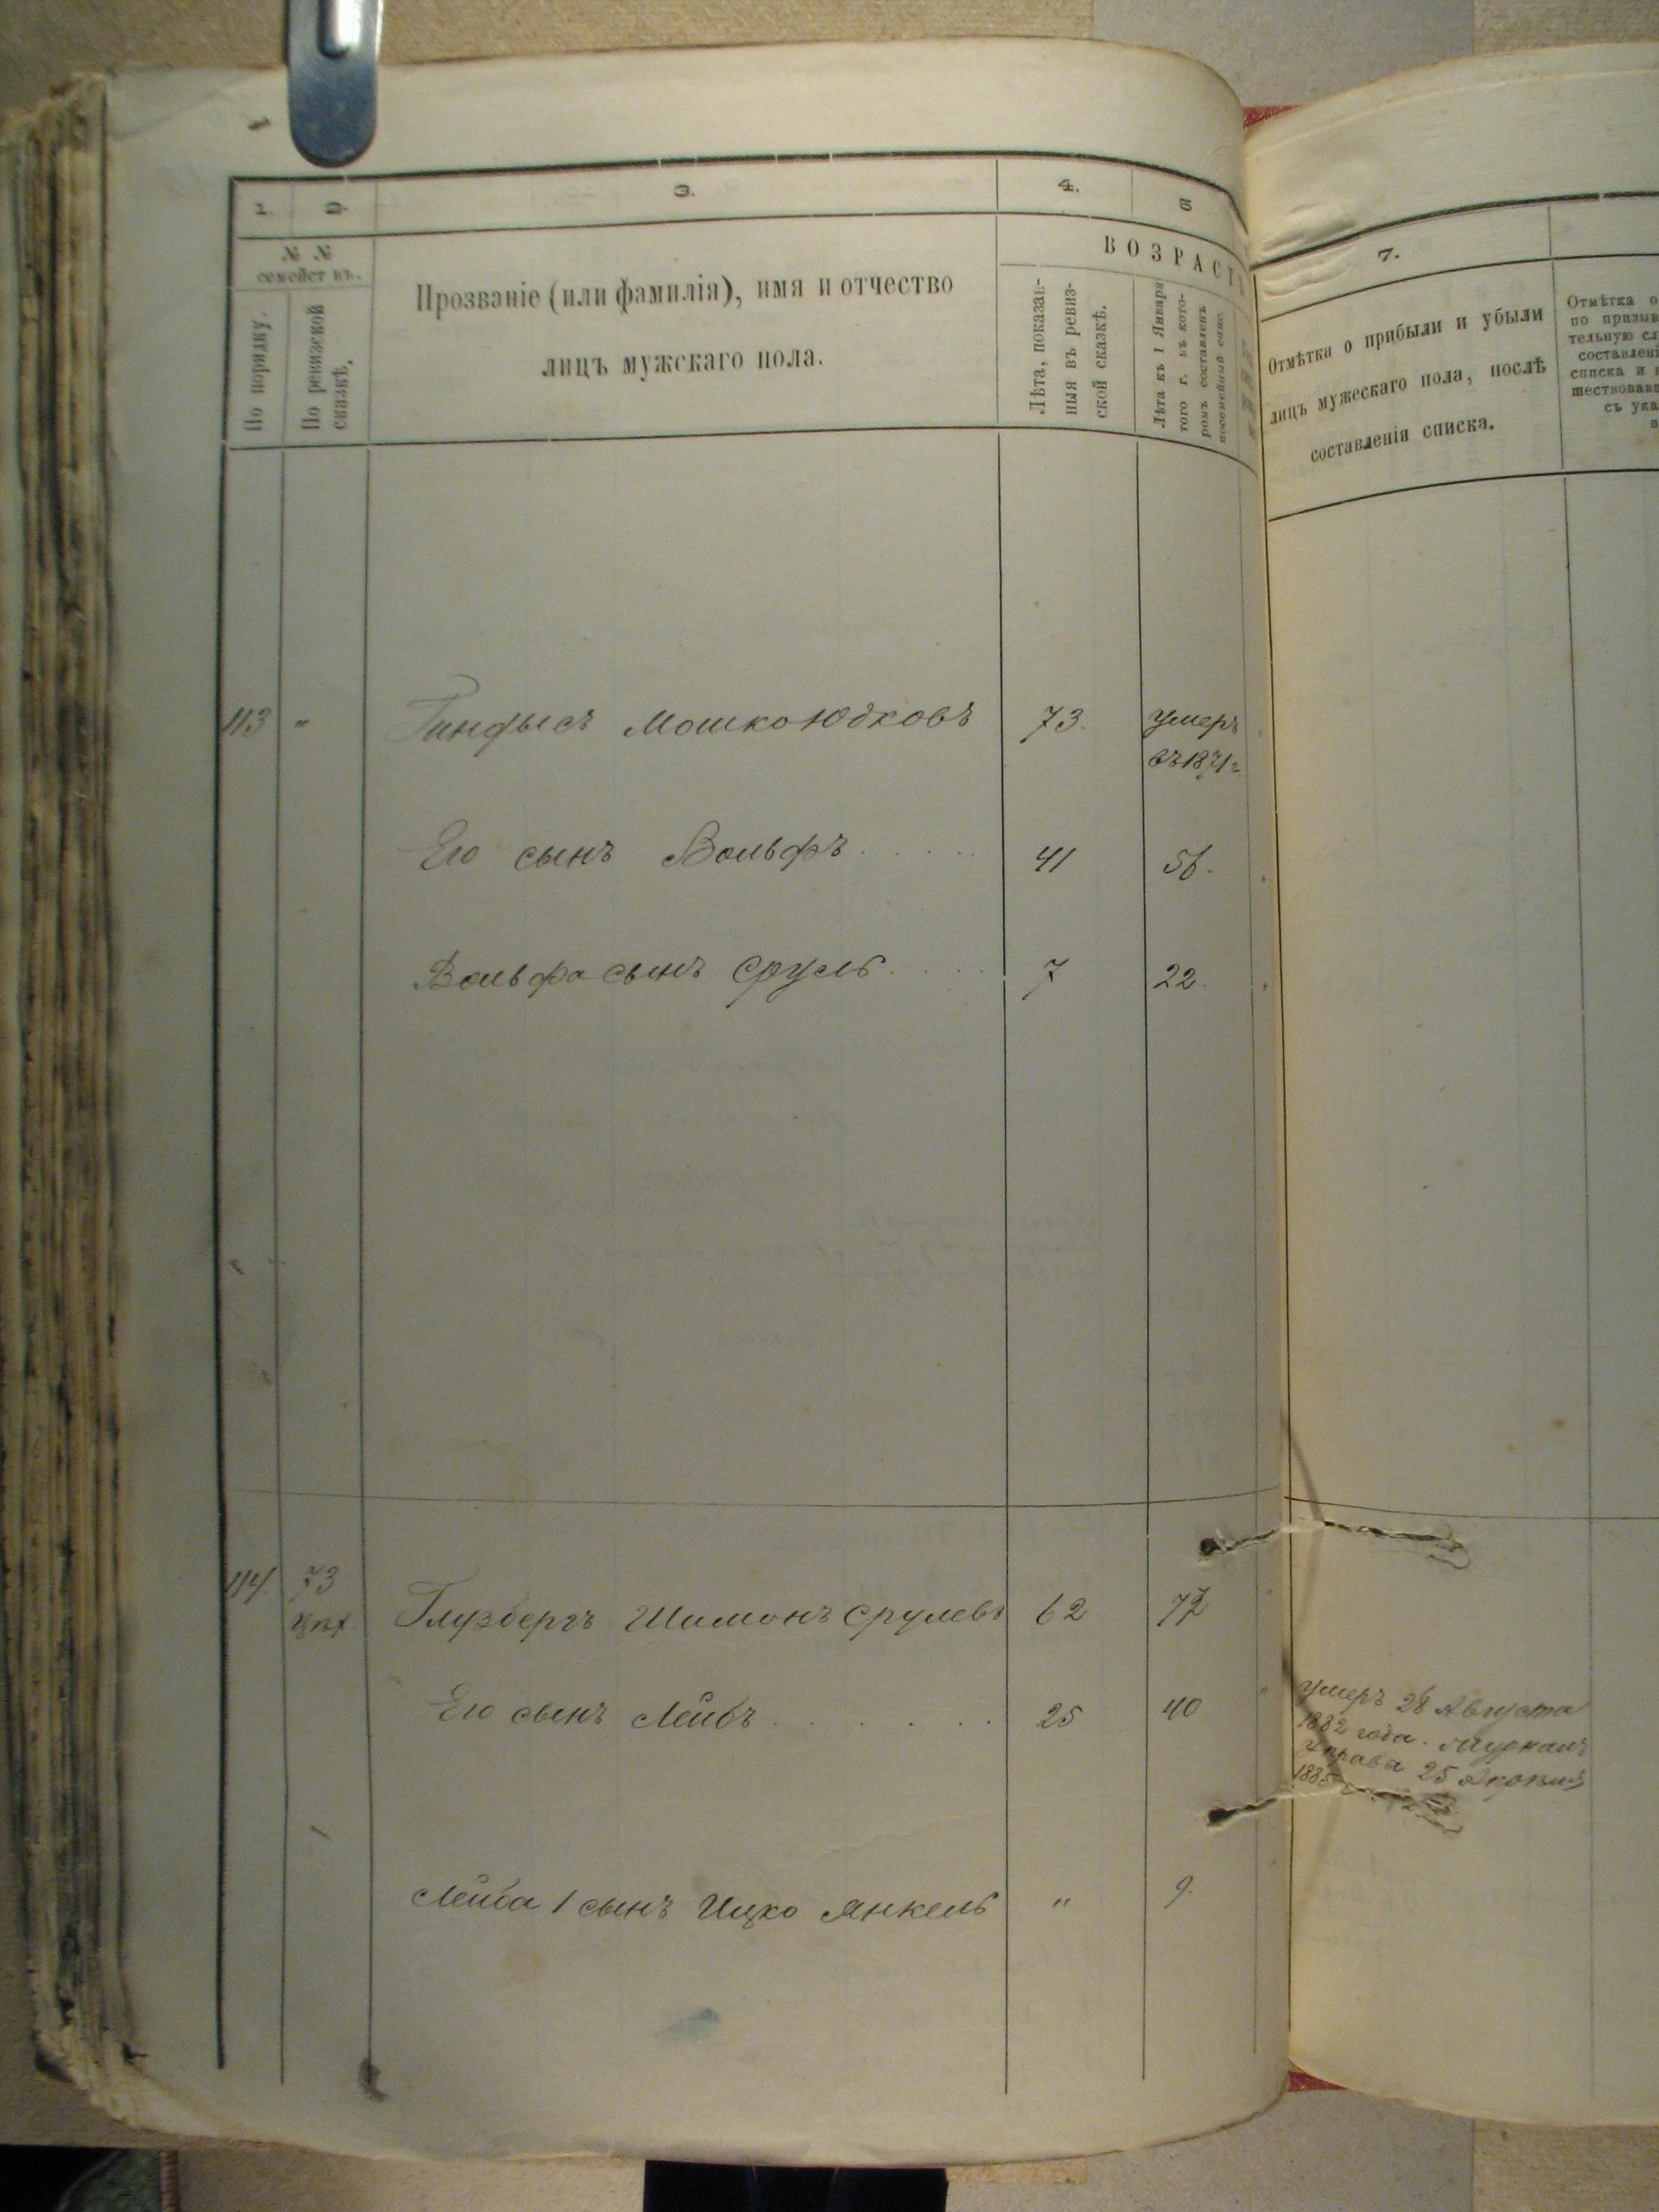 1. 2. 3. 4. 5
№ № семействъ.
По порядку.
По ревизской сказкѣ,
Прозваніе (или фамилія), имя и отчество
лицъ мужскаго пола.
ВОЗРАСТЪ
Лѣта, показан-
ныя въ ревиз-
ской сказкѣ.
Лѣта къ 1 Января
того г. въ кото-
ромъ составленъ
посемейный спис.
7.
Отмѣтка о прибыли и убыли
лицъ мужескаго пола, послѣ
составленія списка.
Отмѣтка о
по призыв
тельную сл
составлені
списка и п
шествовавш
съ ука
113 " Гинфысъ Мошко Юдковъ 73. умеръ
въ 1871 г
Его сынъ Вольфъ 41 56.
Вольфа сынъ Сруль 7 22.
114. 73
Глузбергъ Шимонъ Срулевъ 62 77
Его сынъ Лейбъ 25 40
умеръ 28 Августа
1882 года. журналъ
Управы 25
1885
Лейба 1 сынъ Ицко Янкель " 9.